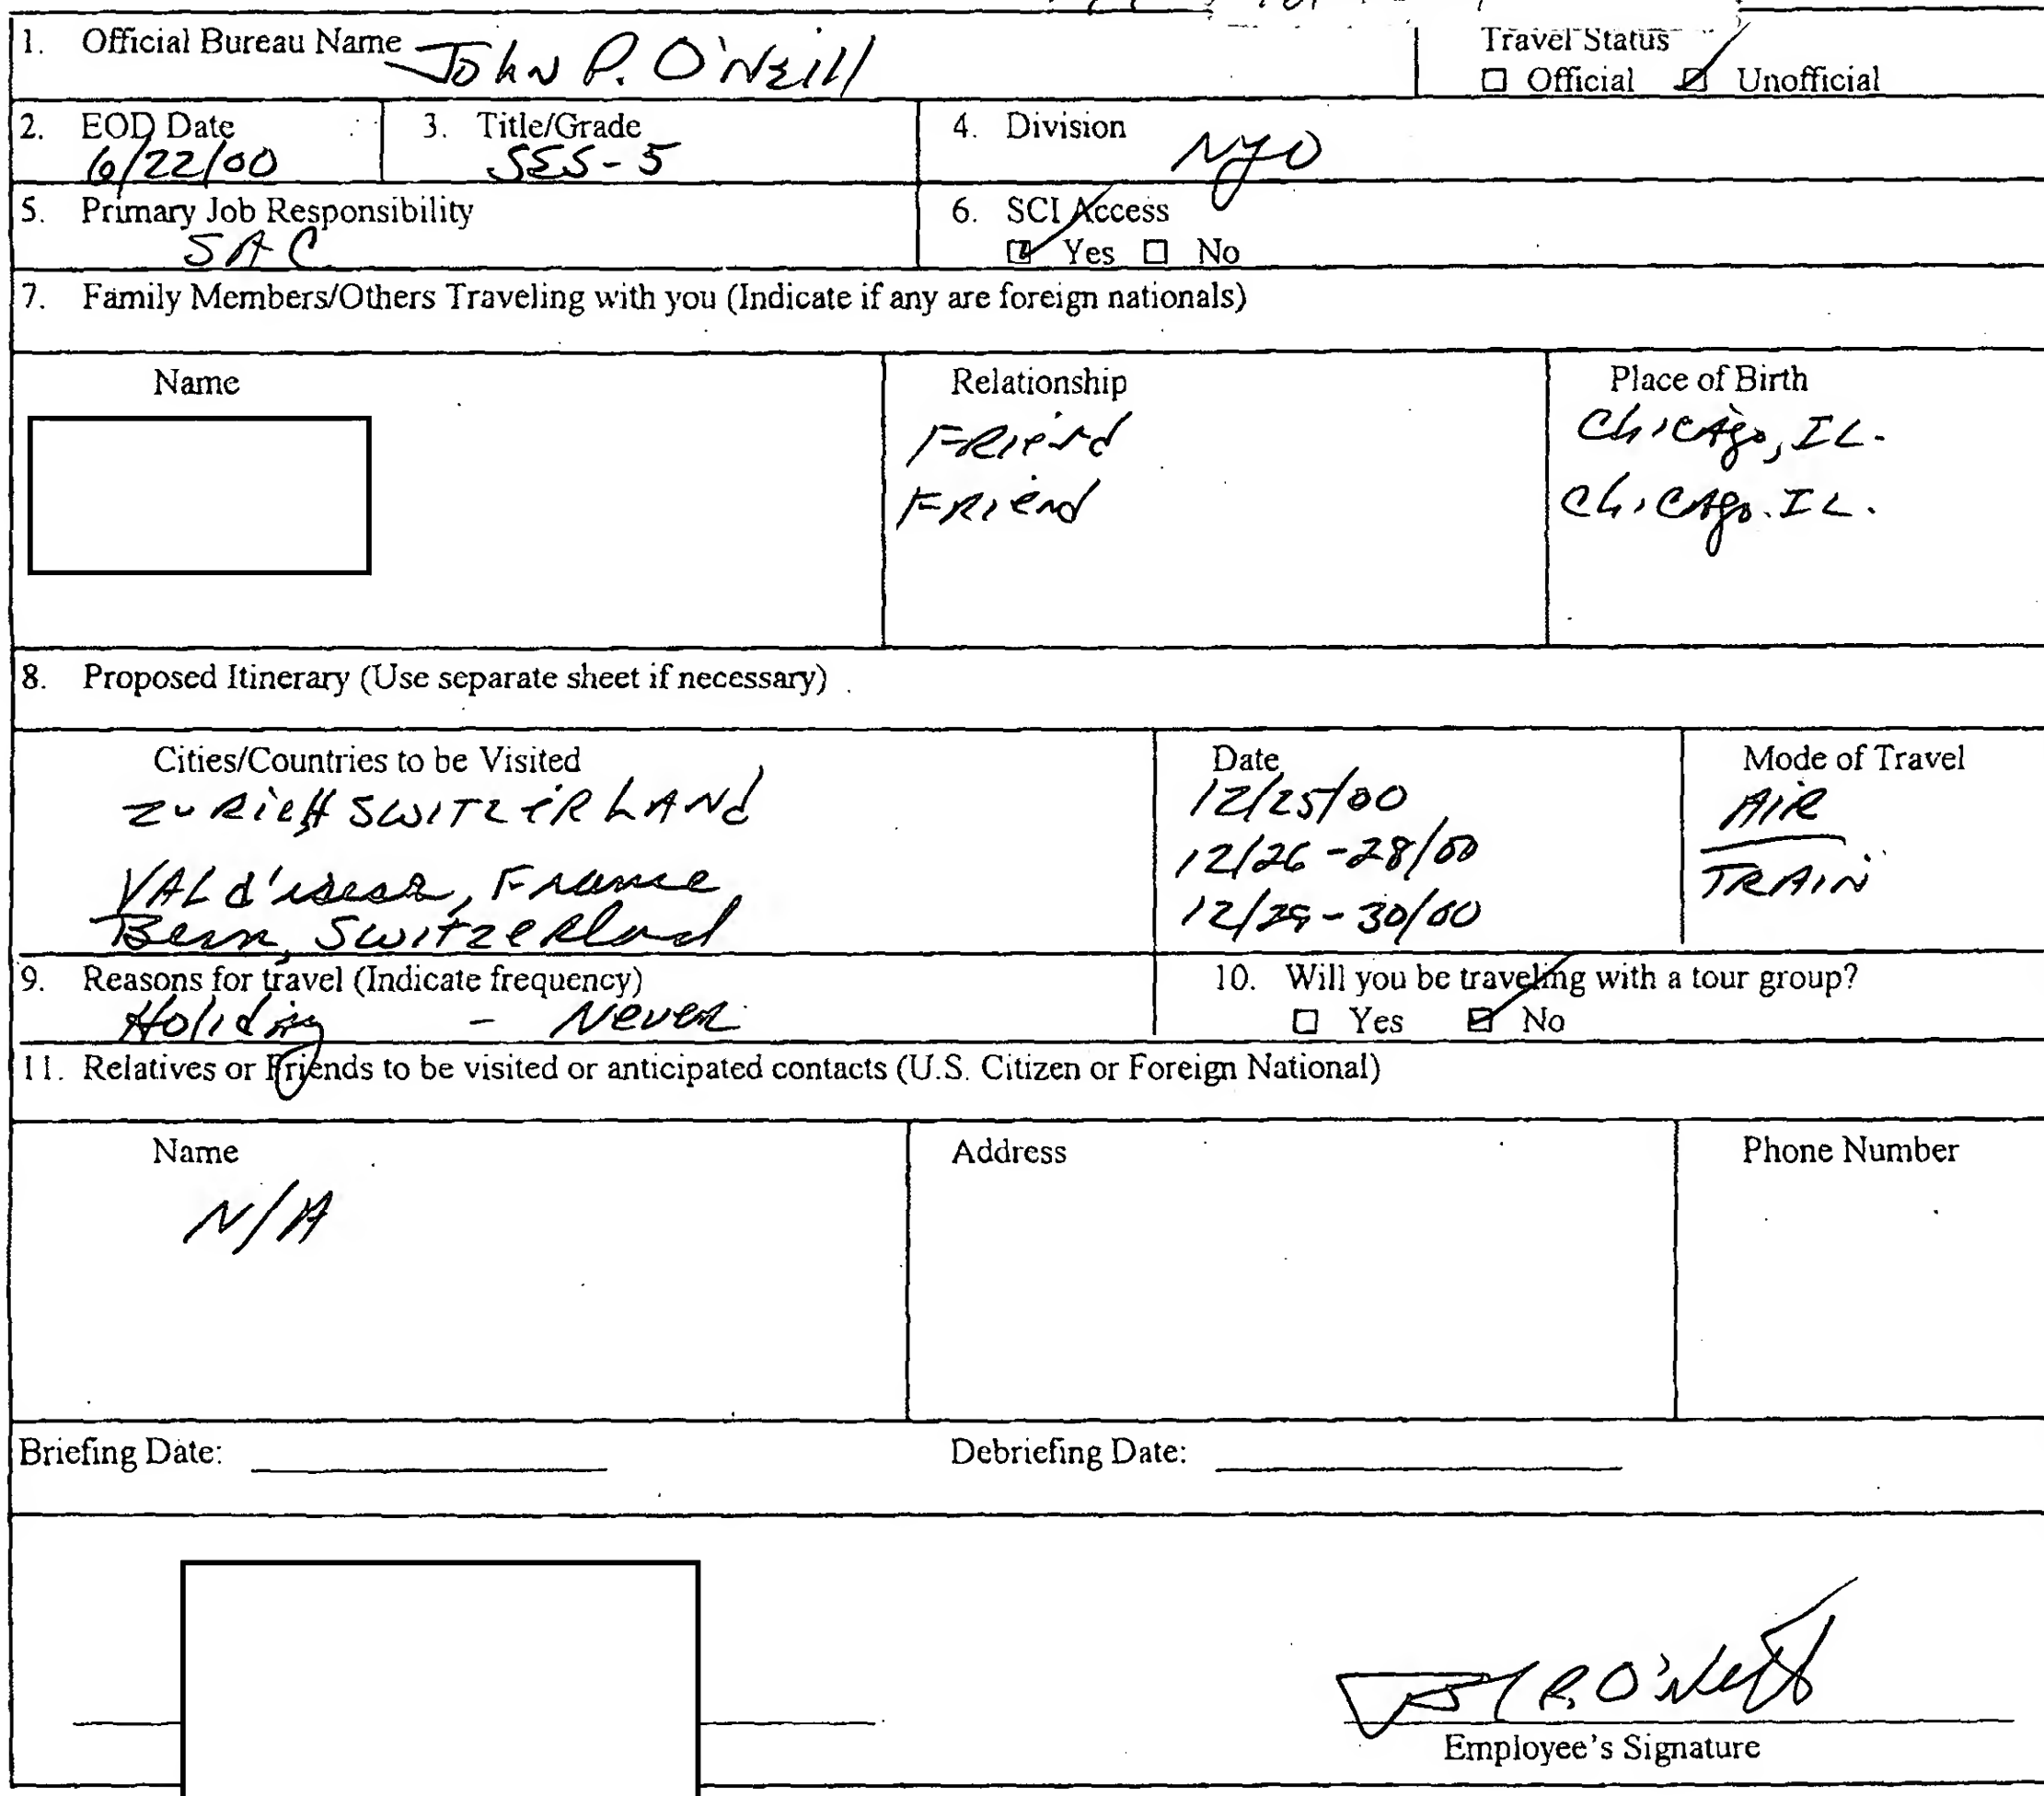 1. Official Bureau Name John P. O'Neill
Travel Status
☐ Official ☑ Unofficial
2. EOD Date 6/22/00
3. Title/Grade SES-5
4. Division NYO
5. Primary Job Responsibility SAC
6. SCI Access
☑ Yes ☐ No
7. Family Members/Others Traveling with you (Indicate if any are foreign nationals)
Name Relationship Place of Birth
Friend Chicago, IL.
Friend Chicago. IL.
8. Proposed Itinerary (Use separate sheet if necessary)
Cities/Countries to be Visited Date Mode of Travel
Zurich Switzerland 12/25/00 Air
Val d', France 12/26-28/00 Train
Bern, Switzerland 12/29-30/00
9. Reasons for travel (Indicate frequency)
Holiday - Never
10. Will you be traveling with a tour group?
☐ Yes ☑ No
11. Relatives or Friends to be visited or anticipated contacts (U.S. Citizen or Foreign National)
Name Address Phone Number
N/A
Briefing Date: Debriefing Date:
P. O'Neill
Employee's Signature